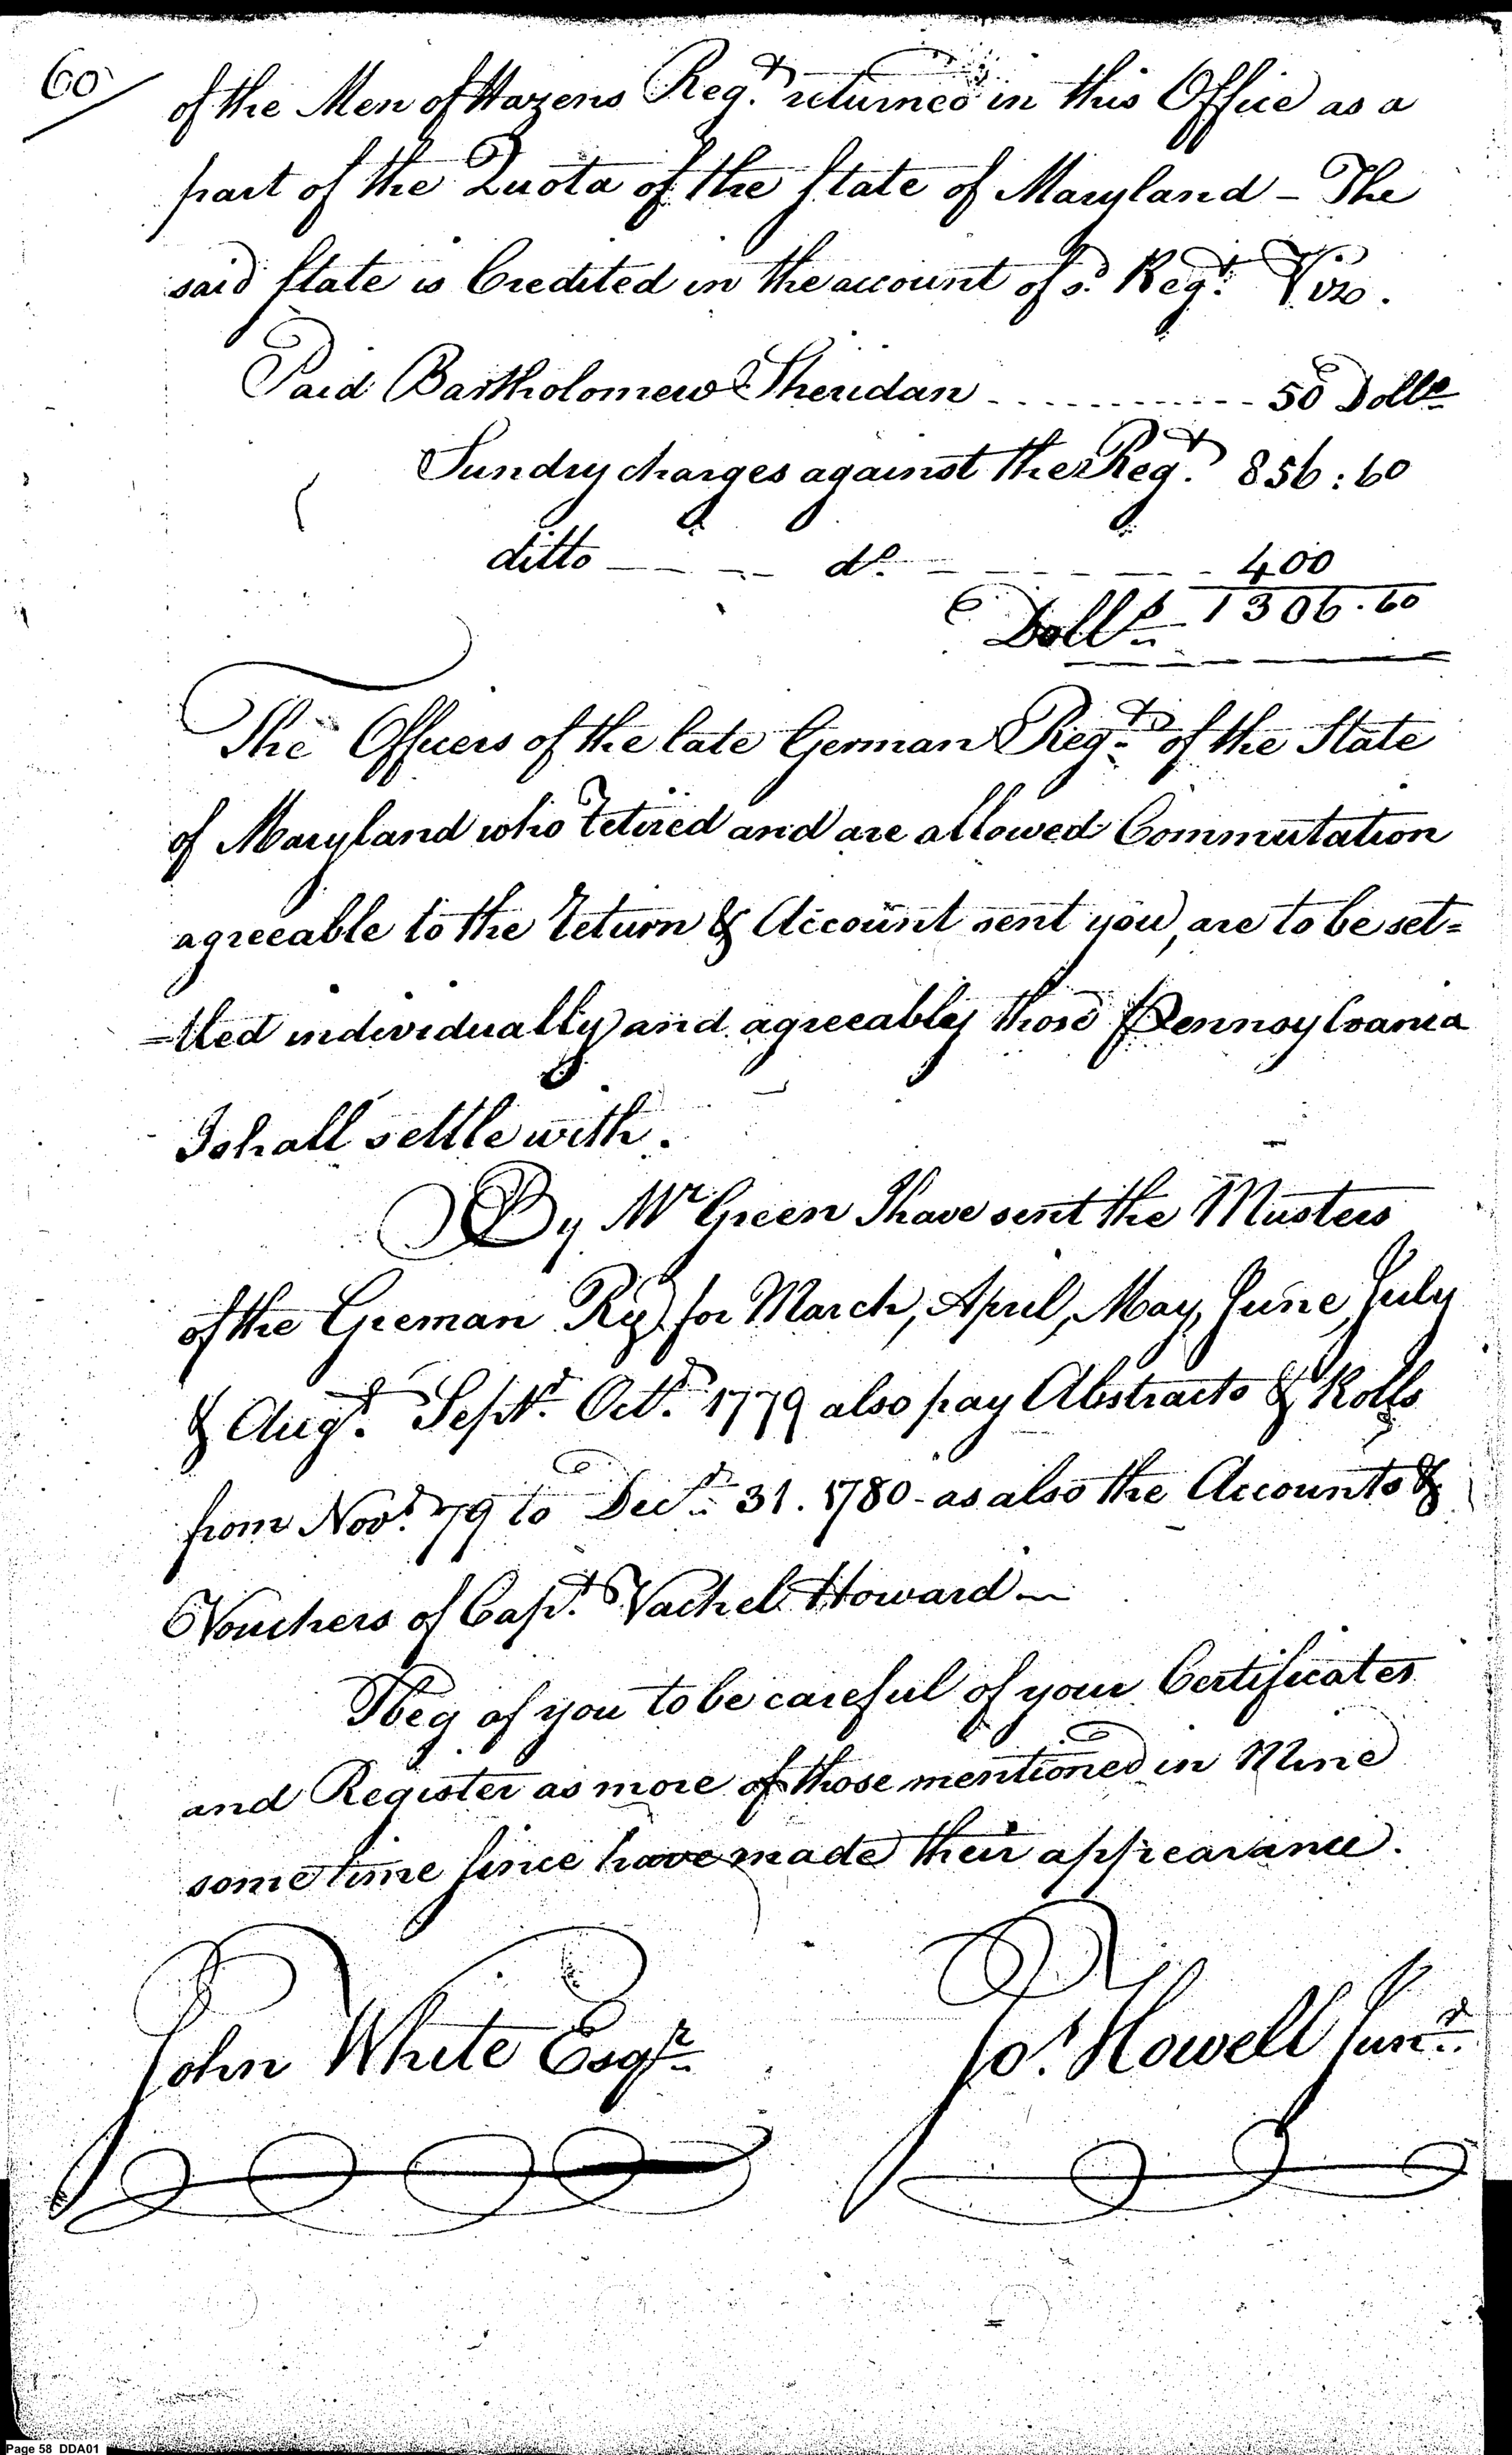 60/
of the Men of Hazens Regt. returned in this Office as a
part of the Quota of the State of Maryland – The
said State is Credited in the account of sd. Regt. Viz.
Paid Bartholomew Sheridan ............ 50 Dolls
Sundry charges against the Regt. 856:60
ditto – – – – do. – – – – – – 400
Dolls. 1306.60
The Officers of the late German Regt. of the State
of Maryland who retired and are allowed Commutation
agreeable to the return & Account sent you, are to be set=
=tled individually and agreeably those Pennsylvania
I shall settle with.
By Mr Green I have sent the Musters
of the Greman Reg for March, April, May, June, July
& Augt. Sept. Oct. 1779 also pay Abstracts & Rolls
from Novr. 79 to Decr. 31. 1780 - as also the Accounts &
Vouchers of Capt. Vachel Howard –
I beg of you to be careful of your Certificates
and Register as more of those mentioned in Mine
sometime since have made their appearance.
John White Esqr. Jos. Howell Junr.
Page 58 DDA01